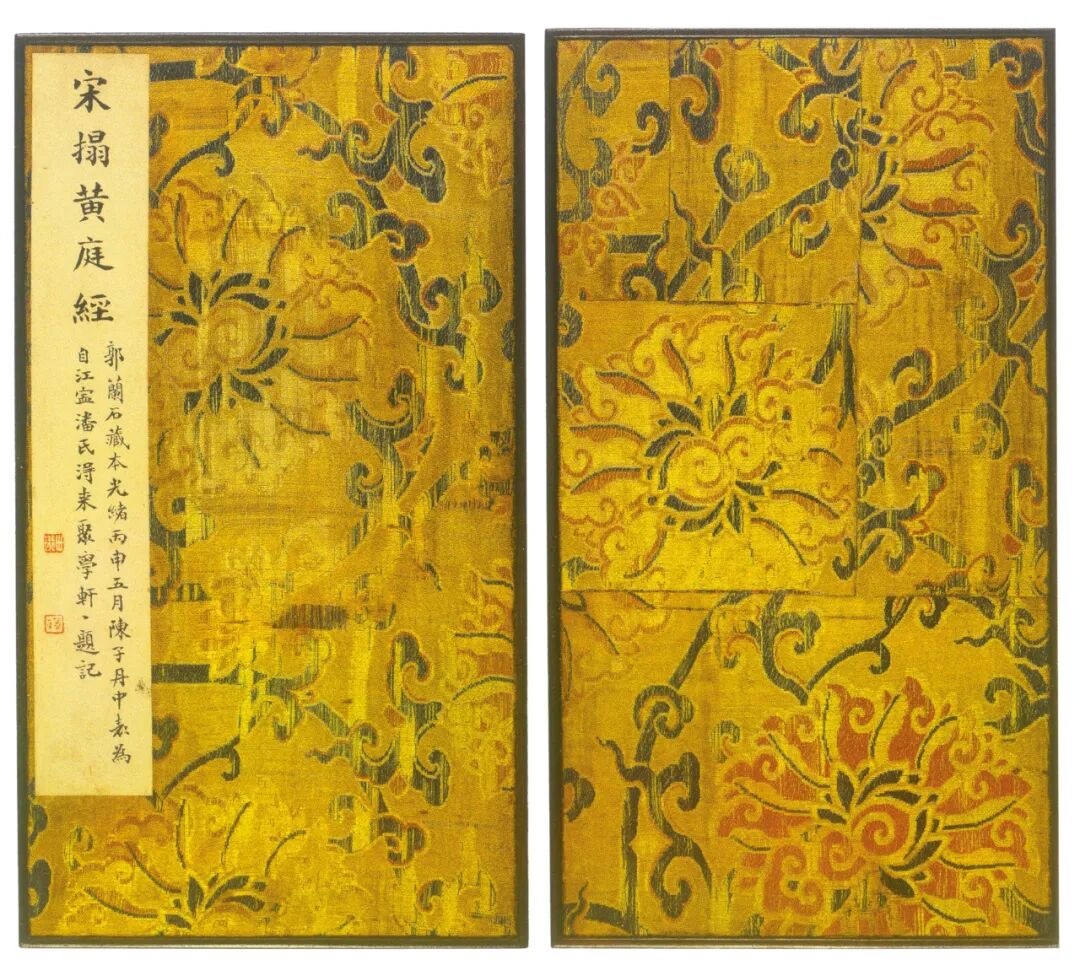 宋搨黄庭經
郭蘭石藏本光緒丙申五月陳子丹中表為
自江寍潘氏淂来聚學軒丶題記